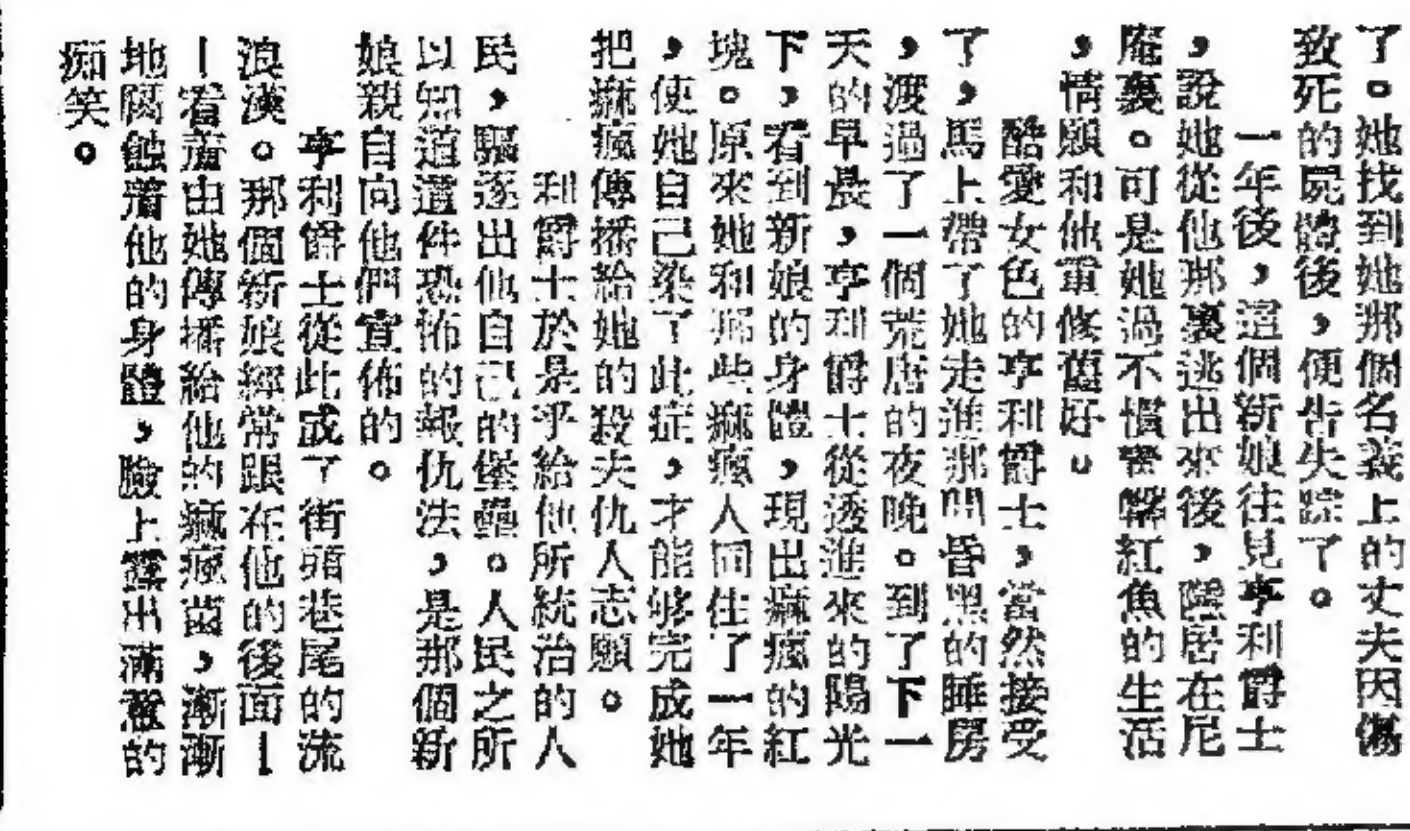 了。她找到她那個名義上的丈夫因傷
致死的屍體後，便告失踪了。
一年後，這個新娘往見亨利爵士
，說她從他那裏逃出來後，隱居在尼
庵裏。可是她過不慣青磬紅魚的生活
，情願和他重修舊好。
酷愛女色的亨利爵士，當然接受
了，馬上帶了她走進那間昏黑的睡房
，渡過了一個荒唐的夜晚。到了下一
天的早晨，亨利爵士從透進來的陽光
下，看到新娘的身體，現出痲瘋的紅
塊。原來她和那些痲瘋人同住了一年
，使她自己染了此症，才能够完成她
把痲瘋傳播給她的殺夫仇人志願。
利爵士於是乎給他所統治的人
民，驅逐出他自己的堡壘。人民之所
以知道這件恐怖的報仇法，是那個新
娘親自向他們宣佈的。
亨利爵士從此成了街頭巷尾的流
浪漢。那個新娘經常跟在他的後面—
—看着由她傳播給他的痲瘋菌，漸漸
地腐蝕着他的身體，臉上露出滿意的
痴笑。